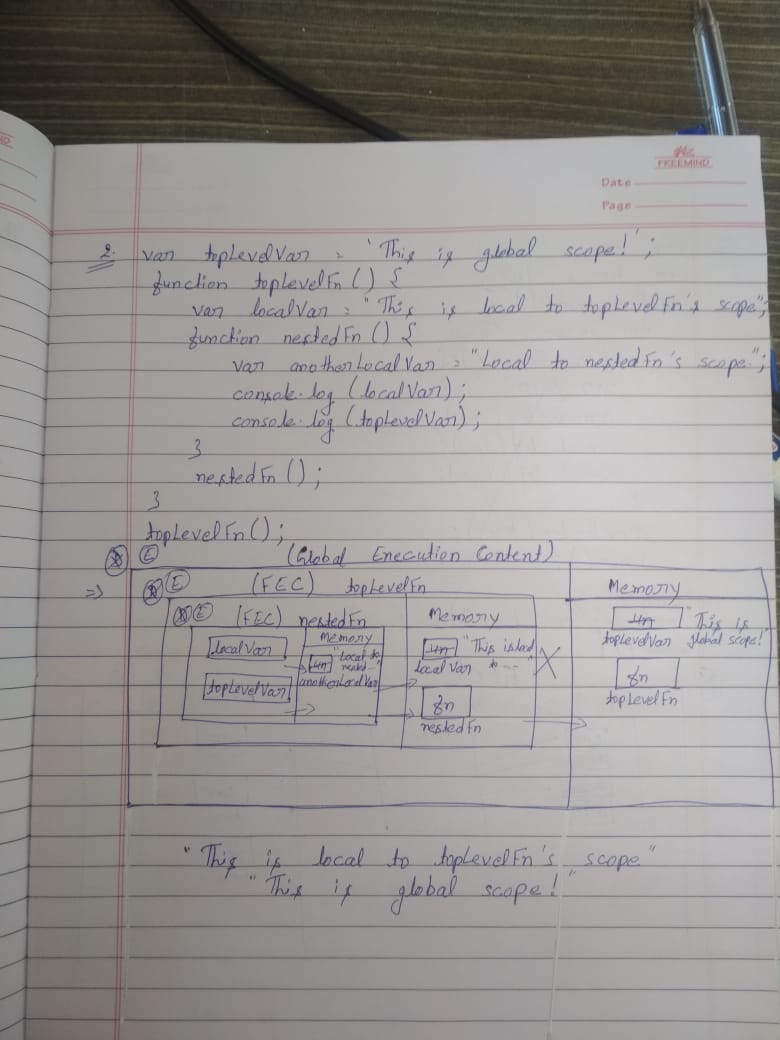 FREEMIND
Date
Page
2. var topLevelVar = 'This is global scope!';
function topLevelFn () {
var localVar = "This is local to topLevelFn's scope";
function nestedFn () {
var anotherLocalVar = "Local to nestedFn's scope.";
console.log (localVar);
console.log (topLevelVar);
}
nestedFn ();
}
topLevelFn ();
E (Global Execution Context)
⇒ E (FEC) topLevelFn Memory
E (FEC) nestedFn Memory un "This is
localVar Memory un "This is local topLevelVar global scope!"
un "Local to localVar to ---"
nested---"
topLevelVar anotherLocalVar fn fn
nestedFn topLevelFn
"This is local to topLevelFn's scope"
"This is global scope!"